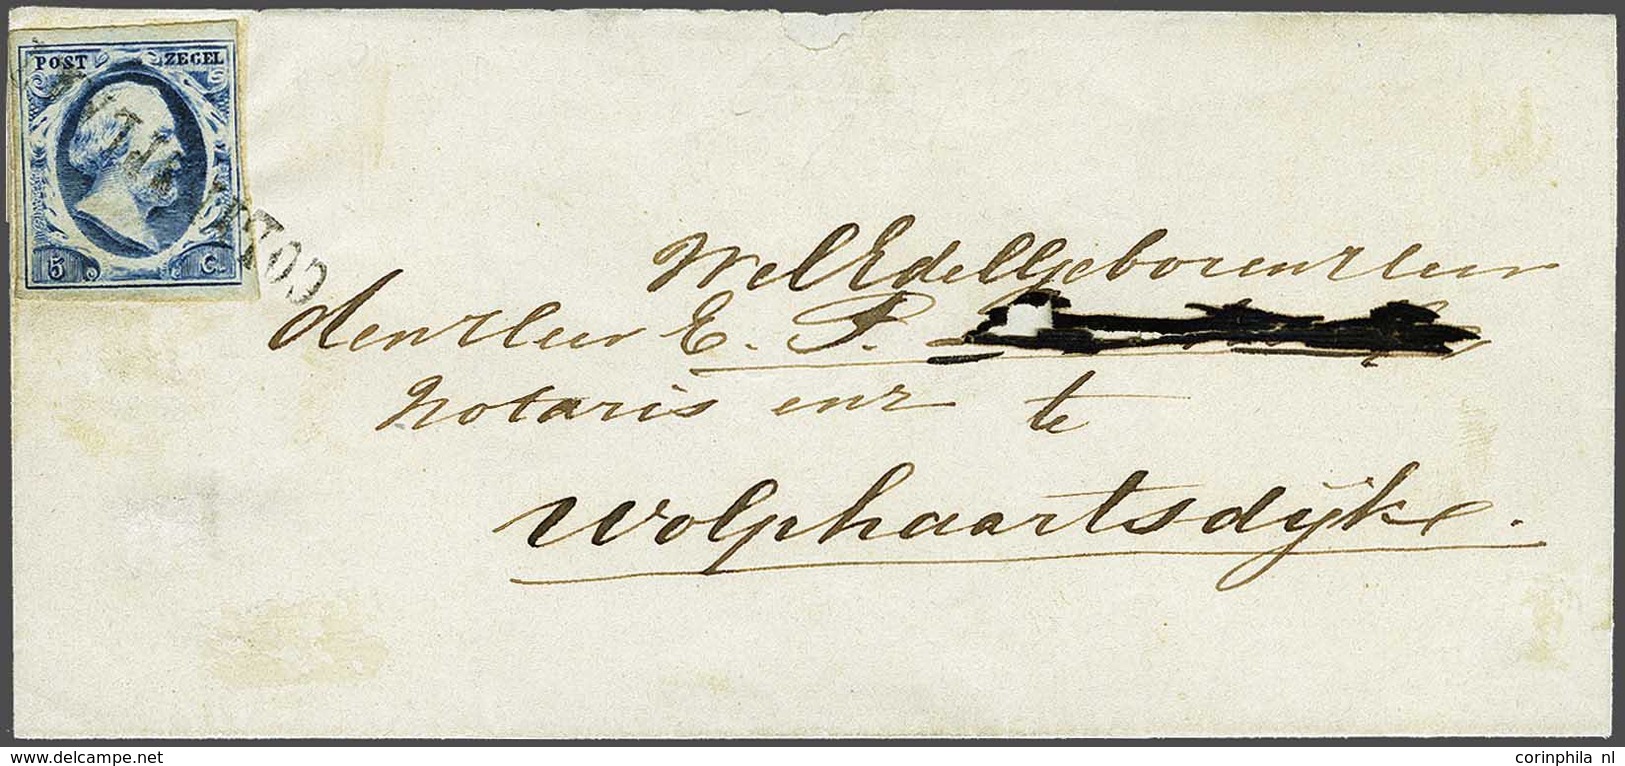 POST ZEGEL
5 C.
WelEdelGeboren Heer
den Heer E. P.
Notaris enz te
Wolphaartsdijke.
delcampe.net
corinphila nl